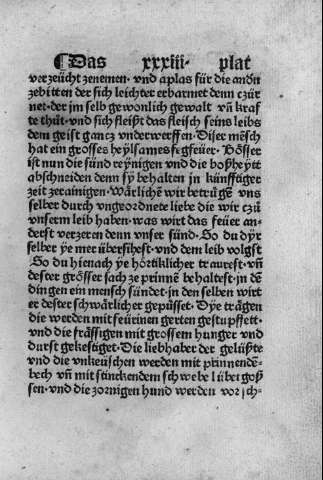 ¶Das xxxiii· plat
verzeücht zenemen· vnd aplas für die andn̄
zebitten der sich leichter erbarmet denn czür
net· der jm selb gewonlich gewalt vn̄ kraf
te thůt· vnd sich fleißt das fleisch seins leibs
dem geist gantz vnderwerffen· Diser mēsch
hat ein grosses heylsames fegfeüer· Bösser
ist nun die sünd reynigen vnd die boßheytt
abschneiden denn sy behalten jn künfftiger
zeit zerainigen· Wärlichē wir betrügē vns
selber durch vngeordnete liebe die wir czů
vnserm leib haben· was wirt das feüer an-
derst verzeren denn vnser sünd· So du dyr
selber ye mer übersihest· vnd dem leib volgst
So du hienach ye hörtiklicher traurest· vn̄
dester grösser sach ze prinnē behaltest· jn dē
dingen ein mensch sündet· jn den selben wirt
er dester schwärlicher gepüsset· Dye trägen
die werden mit feürinen gerten gestupffett·
vnd die frässigen mit grossem hunger vnd
durst gekestiget· Die liebhaber der gelüßte
vnd die vnkeüschen werden mit prinnendē-
bech vn̄ mit stinckendem schwebel übergoß
sen· vnd die zornigen hund werden vor sch-